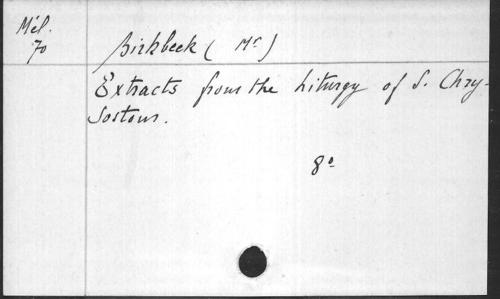 Mél.
70
Birkbeck ( Mr )
Extracts from the Liturgy of S. Chry-
sostom.
8°